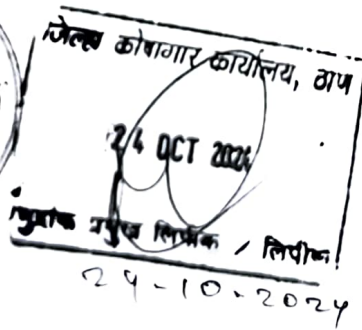 जिल्हा कोषागार कार्यालय, ठाणे
24 OCT 2024
मुद्रांक प्रमुख लिपीक / लिपीक
24-10-2024